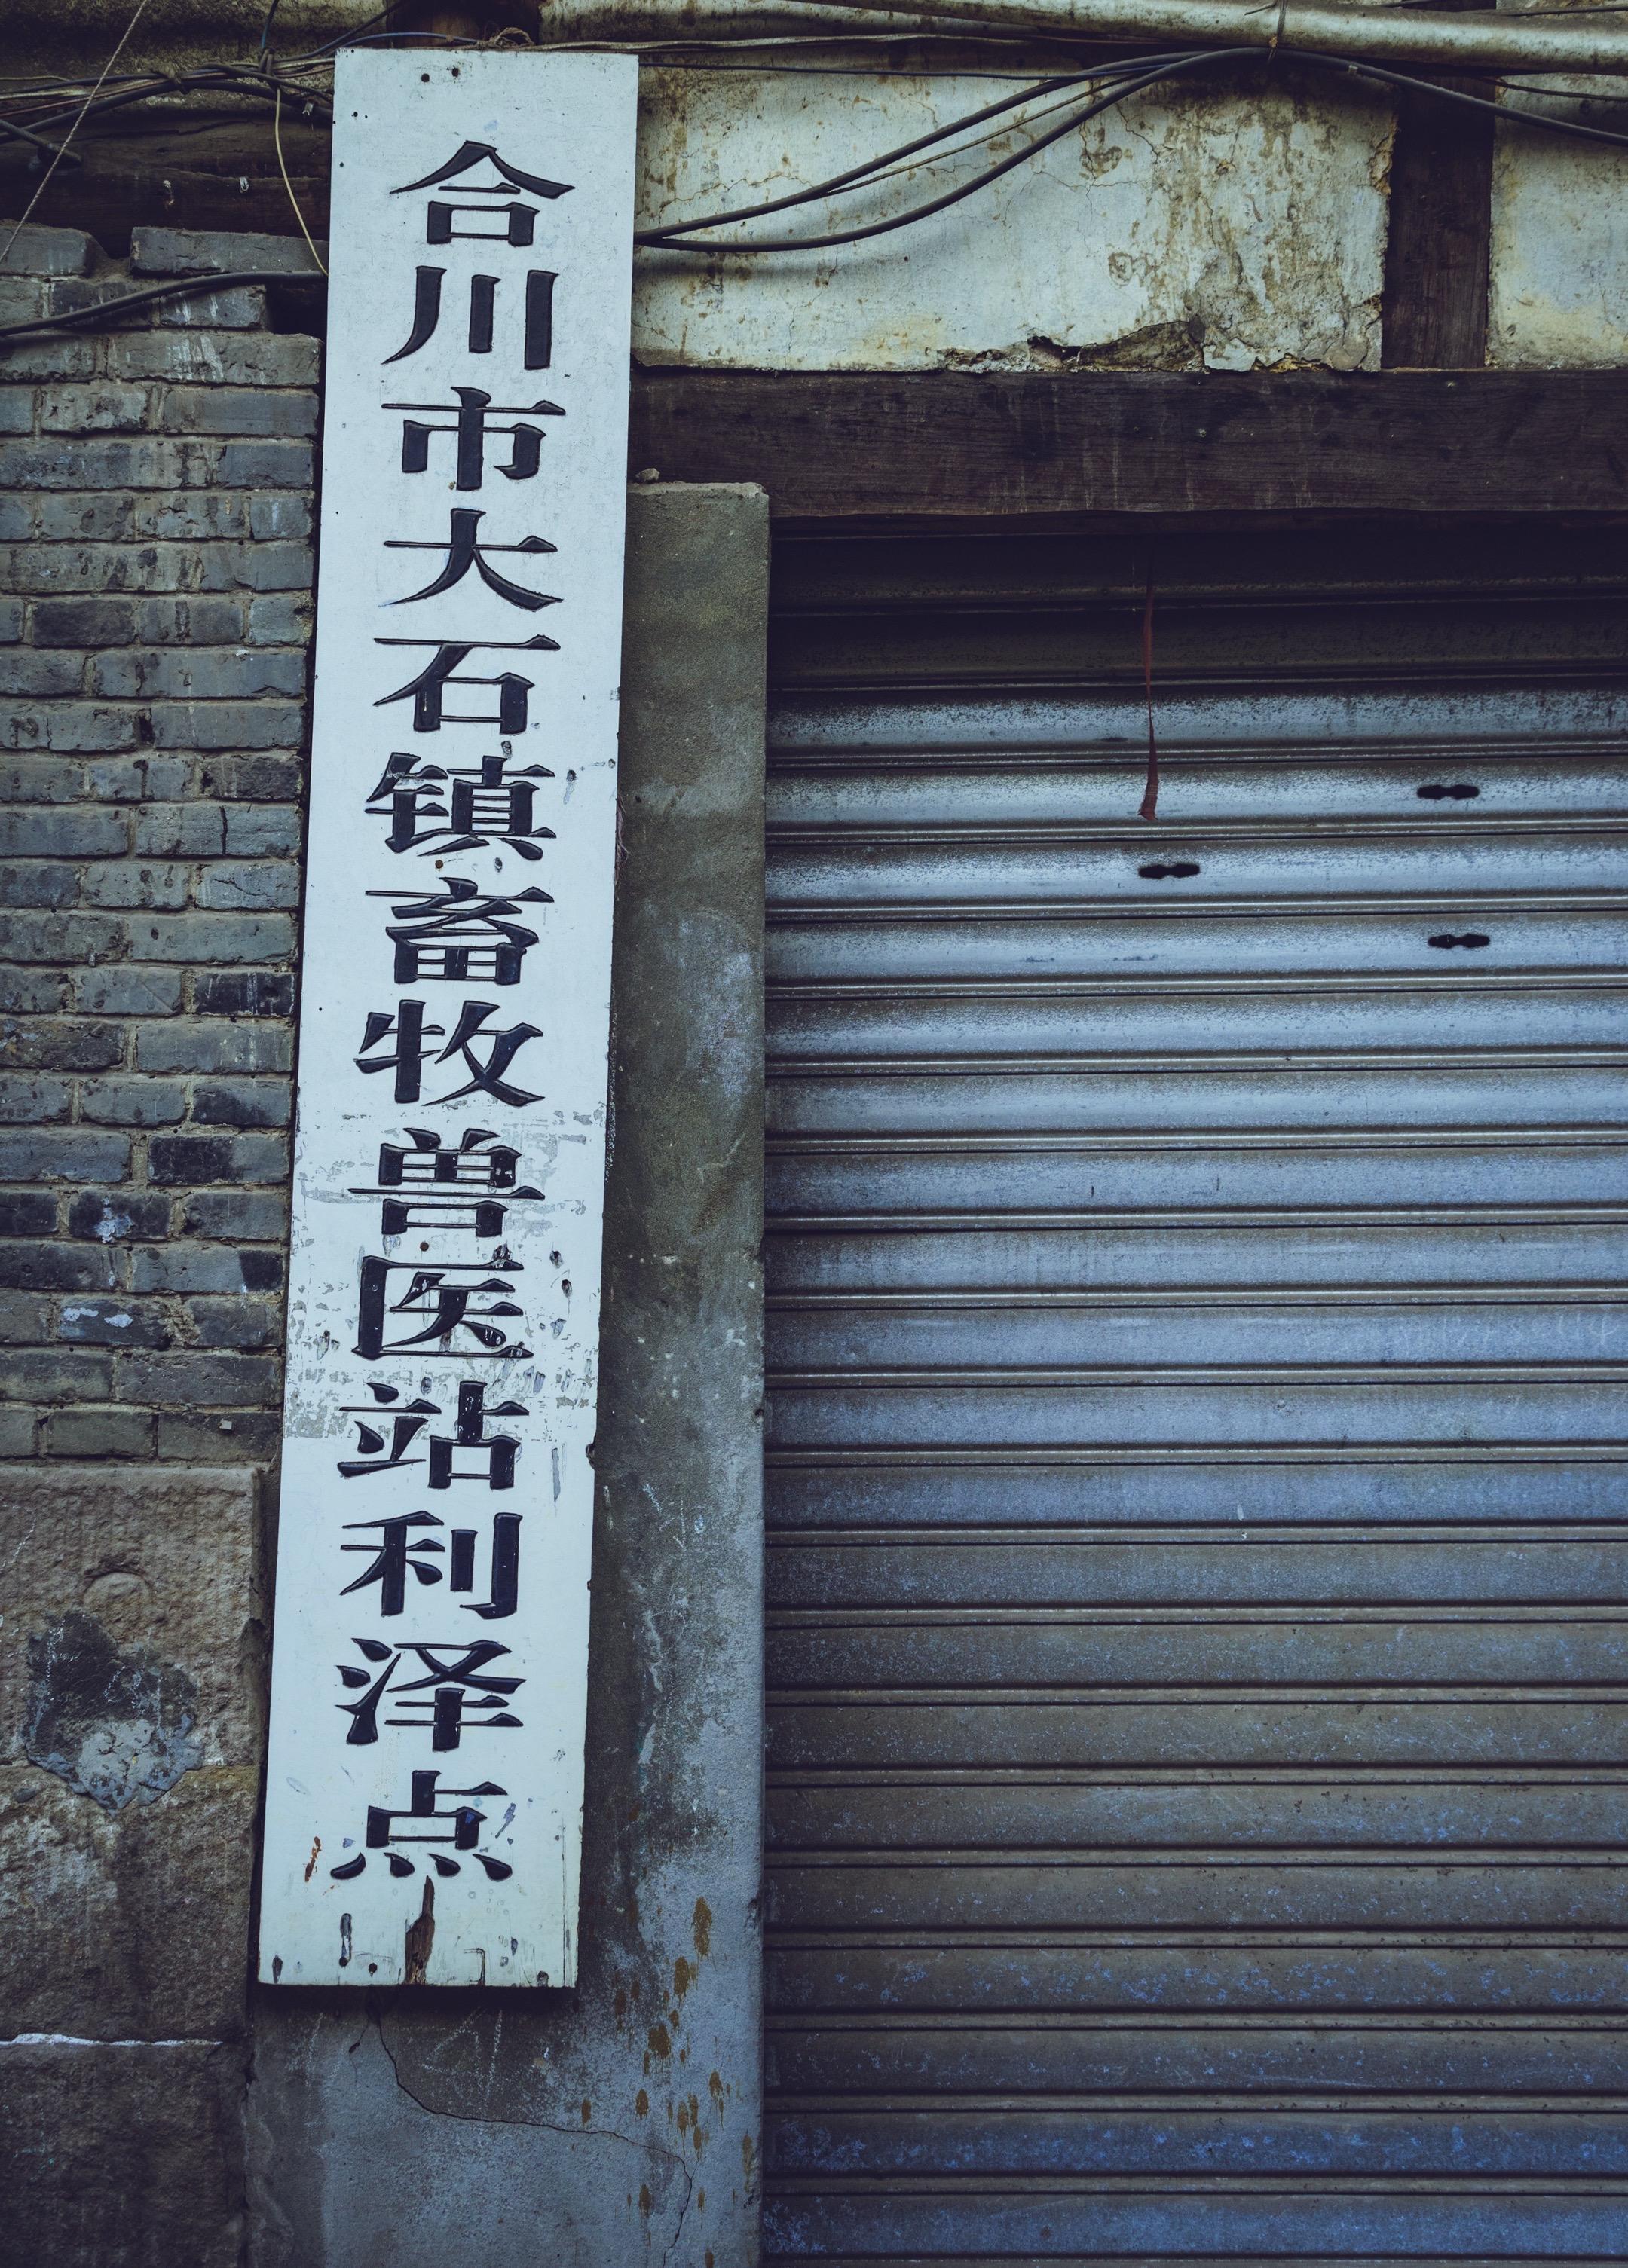 合川市大石镇畜牧兽医站利泽点